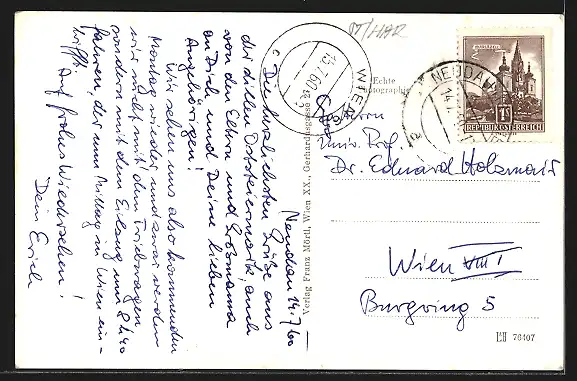 Neudau 14.7.60
Die herzlichsten Grüße aus
der stillen Oststeiermark, auch
von den Eltern und Großmama
an Dich und Deine lieben
Angehörigen!
Wir sehen uns also kommenden
Montag wieder und zwar werden
wir nicht mit dem Triebwagen
sondern mit dem Eilzug um 8h40
fahren, der um Mittag in Wien ein-
trifft. Auf frohes Wiedersehen!
Dein Erich
Verlag Franz Mörtl, Wien XX, Gerhardusgasse 27
Echte
Photographie
15.7.60
WIEN
NEUDAU
14.
MARIAZELL
1S
REPUBLIK ÖSTERREICH
Herrn
Univ. Prof.
Dr. Eduard Holzmair
Wien VIII
Burgring 5
76407